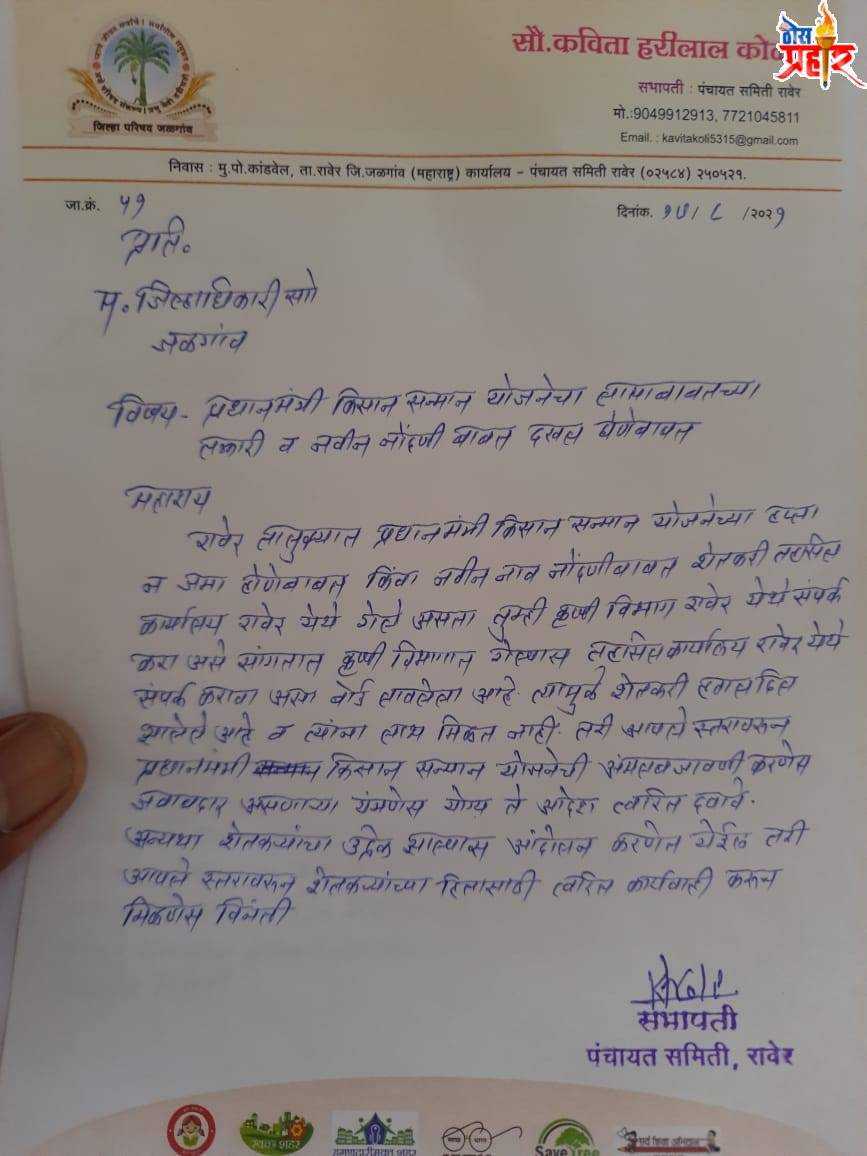 ठोस प्रहार
सौ.कविता हरीलाल
सभापती : पंचायत समिती रावेर
मो.:9049912913, 7721045811
Email. : kavitakoli5315@gmail.com
जिल्हा परिषद जळगांव
निवास : मु.पो.कांडवेल, ता.रावेर जि.जळगांव (महाराष्ट्र) कार्यालय - पंचायत समिती रावेर (०२५८४) २५०५२१.
जा.क्रं. ५१
दिनांक. /८ /२०२१
प्रति.
म. जिल्हाधिकारी सो
जळगांव
विषय- प्रधानमंत्री किसान सन्मान योजनेचा लाभाबाबतच्या
तक्रारी व नवीन नोंदणी बाबत दखल घेणेबाबत
महाशय
रावेर तालुक्यात प्रधानमंत्री किसान सन्मान योजनेच्या हप्ता
न जमा होणेबाबत किंवा नवीन नाव नोंदणीबाबत शेतकरी तहसिल
कार्यालय रावेर येथे गेले असता तुम्ही कृषी विभाग रावेर येथे संपर्क
करा असे सांगतात कृषी विभागात गेल्यास तहसिल कार्यालय रावेर येथे
संपर्क करावा असा बोर्ड लावलेला आहे. त्यामुळे शेतकरी हवालदिल
झालेले आहे व त्यांना लाभ मिळत नाही. तरी आपले स्तरावरून
प्रधानमंत्री किसान सन्मान योजनेची अंमलबजावणी करणेस
जबाबदार असणाऱ्या यंत्रणेस योग्य ते आदेश त्वरित द्यावे.
अन्यथा शेतकऱ्यांचा उद्रेक झाल्यास आंदोलन करणेत येईल तरी
आपले स्तरावरून शेतकऱ्यांच्या हितासाठी त्वरित कार्यवाही करून
मिळणेस विनंती
सभापती
पंचायत समिती, रावेर
स्वच्छ शहर
Save Tree